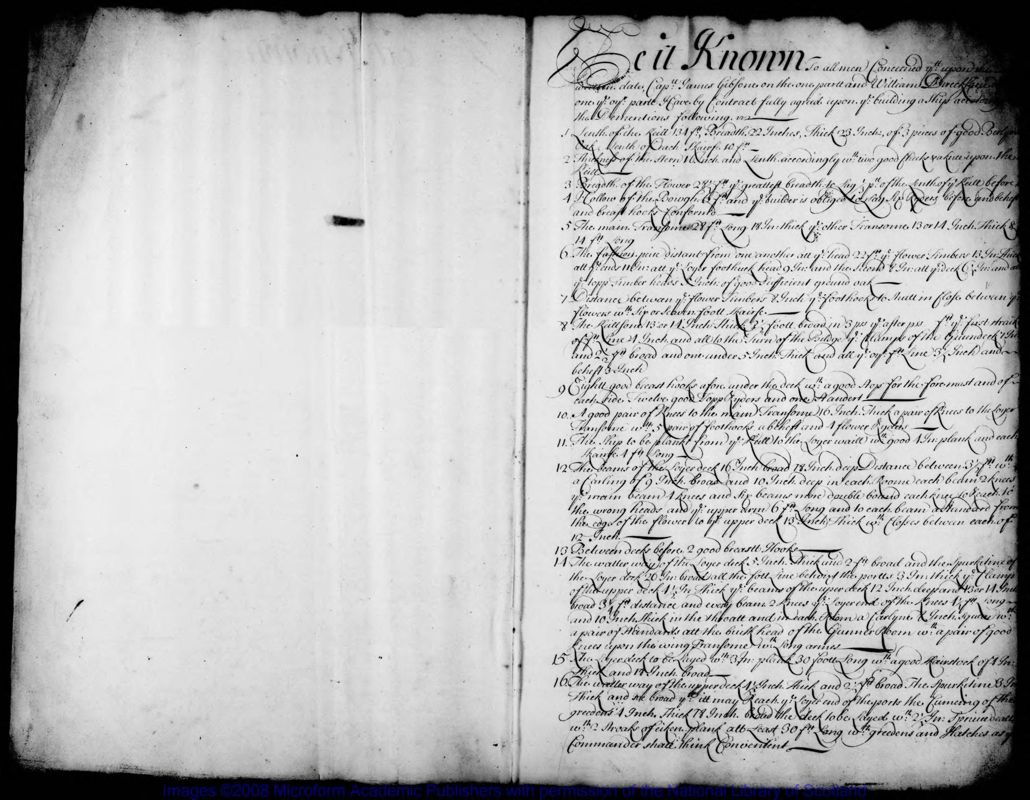 Be it Known To all men Concerned yt upon the
date Capt. James Gibson on the one partt and William
one ye oyr. partt Have by Contract fully agreed upon ye building a Ship according
the Dementions following viz
1 Lenth of the Keill 134 ft, Breadth 22 Inches, Thick 23 Inch: of 3 pieces of good
Oak, Lenth of Each Skairfe 10 ft
2 Thickness of the Stem 16 Inch and Lenth accordingly wt. two good upon the
Keill
3 Breadth of the Flower 28 ft ye greattest breadth to ye pt of the Lenth of ye Keill before
4 Hollow of the Bowgh 6 ft and ye builder is obliged to lay Six Ryders before and behest
and breast hooks Conform
5 The main Transome 28 ft Long 18 In: thick ye other Transoms 13 or 14 Inch Thick &
14 ft Long
6 The fashion pein distant from one another att ye head 22 ft ye flower Timbers 13 In: thick
att ye ends 11 In: att ye Loyer foothuck head 9 In: and the Second 8 In: att ye deck 6 In: and att
ye topp Timber heads 5 Inch: of good Sufficient ground oak
7 Distance between ye flower Timbers 8 Inch ye foothooks to Shutt in Close between ye
flowers wt. Six or Seaven foott Skairfe
8 The Keillsone 13 or 14 Inch: Thick 2½ foott broad in 3 ps ye after ps ft ye first straik
of Line 4 Inch and att to the Turn of the Bildge ye Clamps of the Gunndeck Inch
and 2½ ft broad and one under 5 Inch Thick and all ye oyr ft Line 3½ Inch and
behest 3 Inch
9 Eightt good breast hooks afore under the deck wt. a good Step for the foremast and of
each side Twelve good Topp Ryders and one Standert
10 A good pair of Knees to the main Transome 16 Inch Thick a pair of Knees to the Loyer
Transome wt. 5 pair of foothooks abehest and 4 flower Ryders
11 The Ship to be plankt from ye Keill to the Loyer waill wt. good 4 In: plank and each
Skairfe 4 ft Long
12 The beams of the Loyer deck 16 Inch broad 18 Inch deep Distance between 3½ ft wt.
a Carling of 9 Inch broad and 10 Inch deep in each Room each beam 2 knees
ye main beam 4 knees and Six beams more double bound each knee to Reach to
the wrong heads and ye upper arm 6 ft Long and to each beam a standard from
the edge of the flower to ye upper deck 13 Inch: Thick wt. Closses between each of
12 Inch
13 Between decks before 2 good breastt Hooks
14 The watter way of the Loyer deck 5 Inch Thick and 2 ft broad and the Spurketine of
the Loyer deck 20 In: broad all the fott Line behest the portts 3 In: thick ye Clamp
of the upper deck 4½ In: Thick ye beams of the uper deck 12 Inch deep and 13 or 14 Inch
broad 3½ ft distance and every beam 2 Knees ye Loyer end of the Knees 4½ ft Long
and 10 Inch Thick in the throatt and in each Room a Carlyne 8 Inch Square wt.
a pair of Standards att the bulk head of the Gunner Room wt. a pair of good
Knees upon the wing Transome wt. Long arms
15 The Loyer deck to be Layed wt. 3 In: plank 30 foott Long wt. a good Stairstock of 4 In:
Thick and 18 Inch broad
16 The watter way of the upper deck 4½ Inch Thick and 2 ft broad The Spurketine 3 In:
Thick and broad yt itt may Reach ye Loyer end of the ports the Cumeing of the
greedens 4 Inch Thick 18 Inch broad the deck to be Layed wt. 2½ In: Spruce dealls
wt. 2 Stroaks of eiken plank att Least 30 ft Long wt. greedens and Hatches as ye
Commander shall think Convenient
Images ©2008 Microform Academic Publishers with permission of the National Library of Scotland